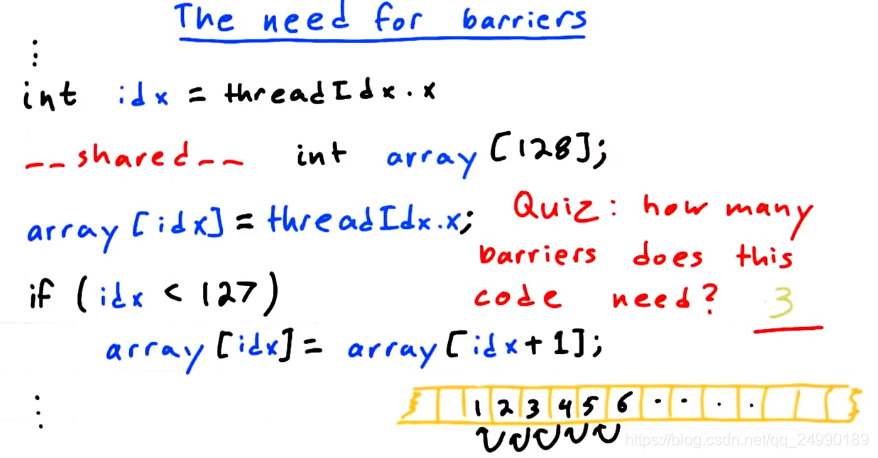 The need for barriers
int idx = threadIdx.x
__shared__ int array[128];
array[idx] = threadIdx.x;
Quiz: how many
barriers does this
code need? 3
if (idx < 127)
array[idx] = array[idx+1];
1 2 3 4 5 6 . . . .
https://blog.csdn.net/qq_24990189